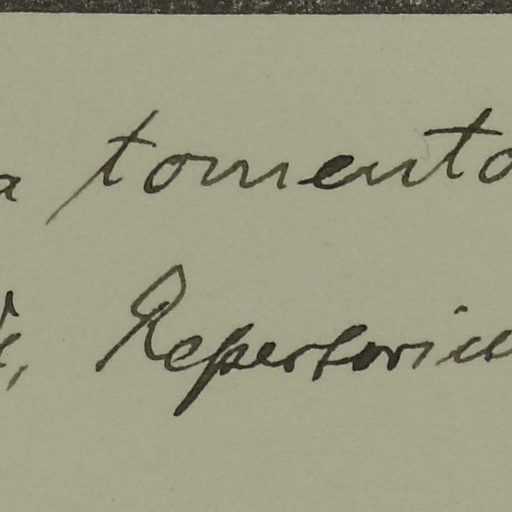 a tomento
, Repertoriu